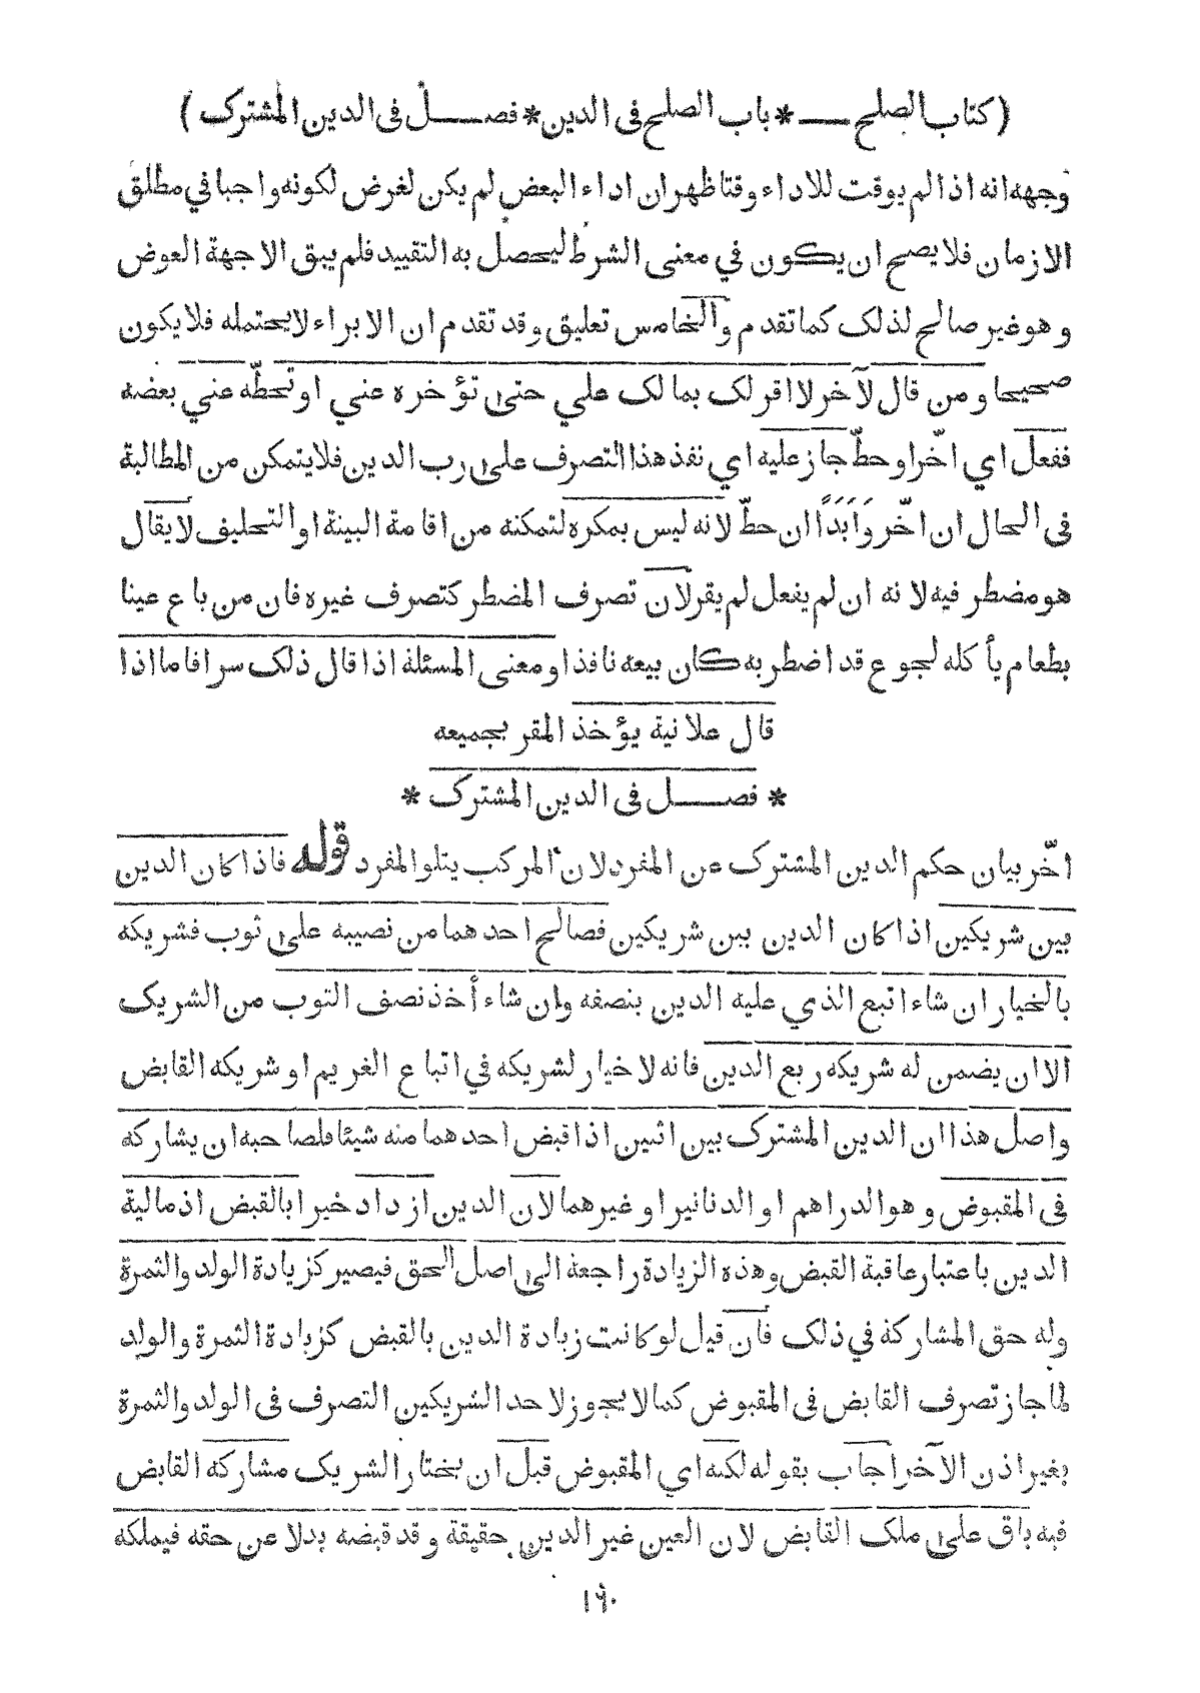 (كتاب الصلح — * باب الصلح فى الدين * فصل فى الدين المشترك)
وجهه انه اذا لم يوقت للاداء وقتا ظهر ان اداء البعض لم يكن لغرض لكونه واجبا في مطلق
الازمان فلا يصح ان يكون في معنى الشرط ليحصل به التقييد فلم يبق الا جهة العوض
وهو غير صالح لذلك كما تقدم والخامس تعليق وقد تقدم ان الابراء لا يحتمله فلا يكون
صحيحا ومن قال لآخر لا اقر لك بما لك علي حتى تؤخره عني او تحطّه عني بعضه
ففعل اي اخّر او حطّ جاز عليه اي نفذ هذا التصرف على رب الدين فلا يتمكن من المطالبة
فى الحال ان اخّر وَاَبَدًا ان حطّ لانه ليس بمكره لتمكنه من اقامة البينة او التحليف لا يقال
هو مضطر فيه لانه ان لم يفعل لم يقر لان تصرف المضطر كتصرف غيره فان من باع عينا
بطعام يأكله لجوع قد اضطر به كان بيعه نافذا ومعنى المسئلة اذا قال ذلك سرا فاما اذا
قال علانية يؤخذ المقر بجميعه
* فصل فى الدين المشترك *
اخّر بيان حكم الدين المشترك عن المفرد لان المركب يتلو المفرد قوله فاذا كان الدين
بين شريكين اذا كان الدين بين شريكين فصالح احدهما من نصيبه على ثوب فشريكه
بالخيار ان شاء اتبع الذي عليه الدين بنصفه وان شاء أخذ نصف الثوب من الشريك
الا ان يضمن له شريكه ربع الدين فانه لا خيار لشريكه في اتباع الغريم او شريكه القابض
واصل هذا ان الدين المشترك بين اثنين اذا قبض احدهما منه شيئا فلصاحبه ان يشاركه
فى المقبوض وهو الدراهم او الدنانير او غيرهما لان الدين ازداد خيرا بالقبض اذ مالية
الدين باعتبار عاقبة القبض وهذه الزيادة راجعة الى اصل الحق فيصير كزيادة الولد والثمرة
وله حق المشاركة في ذلك فان قيل لو كانت زيادة الدين بالقبض كزيادة الثمرة والولد
لما جاز تصرف القابض فى المقبوض كما لا يجوز لاحد الشريكين التصرف فى الولد والثمرة
بغير اذن الآخر اجاب بقوله لكنه اي المقبوض قبل ان يختار الشريك مشاركه القابض
فيه باق على ملك القابض لان العين غير الدين حقيقة وقد قبضه بدلا عن حقه فيملكه
١٦٠